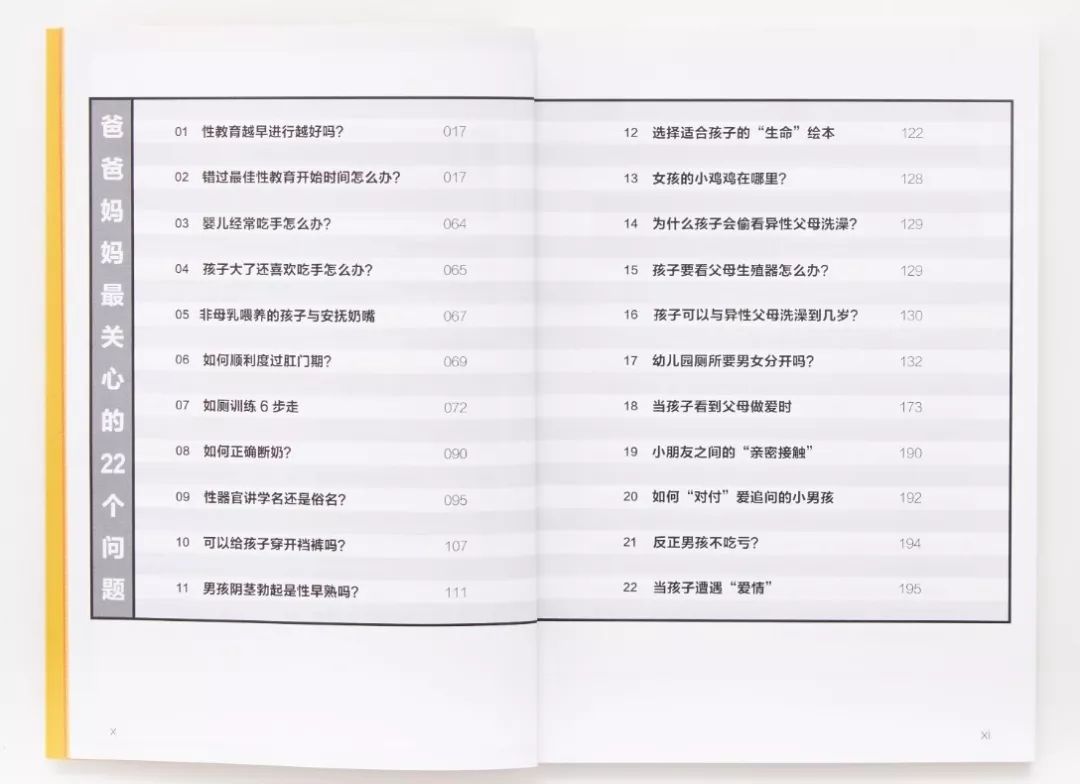 爸爸妈妈最关心的22个问题
01 性教育越早进行越好吗? 017
02 错过最佳性教育开始时间怎么办? 017
03 婴儿经常吃手怎么办? 064
04 孩子大了还喜欢吃手怎么办? 065
05 非母乳喂养的孩子与安抚奶嘴 067
06 如何顺利度过肛门期? 069
07 如厕训练6步走 072
08 如何正确断奶? 090
09 性器官讲学名还是俗名? 095
10 可以给孩子穿开裆裤吗? 107
11 男孩阴茎勃起是性早熟吗? 111
x
12 选择适合孩子的“生命”绘本 122
13 女孩的小鸡鸡在哪里? 128
14 为什么孩子会偷看异性父母洗澡? 129
15 孩子要看父母生殖器怎么办? 129
16 孩子可以与异性父母洗澡到几岁? 130
17 幼儿园厕所要男女分开吗? 132
18 当孩子看到父母做爱时 173
19 小朋友之间的“亲密接触” 190
20 如何“对付”爱追问的小男孩 192
21 反正男孩不吃亏? 194
22 当孩子遭遇“爱情” 195
xi